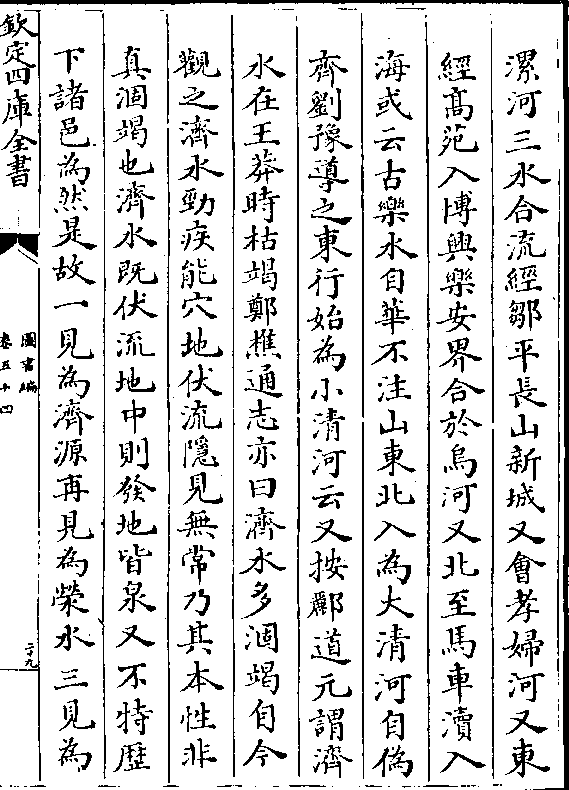 漯河三水合流經鄒平長山新城又㑹孝婦河又東
經髙苑入博興樂安界合於烏河又北至馬車瀆入
海或云古樂水自華不注山東北入為大清河自偽
齊劉豫導之東行始為小清河云又按酈道元謂濟
水在王莽時枯竭鄭樵通志亦曰濟水多涸竭自今
觀之濟水勁疾能穴地伏流隱見無常乃其本性非
真涸竭也濟水既伏流地中則發地皆泉又不特歴
下諸邑為然是故一見為濟源再見為滎水三見為
欽定四庫全書
圖書編
卷五十四
二十九